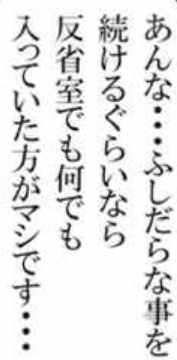 あんな・・・ふしだらな事を
続けるぐらいなら
反省室でも何でも
入っていた方がマシです・・・